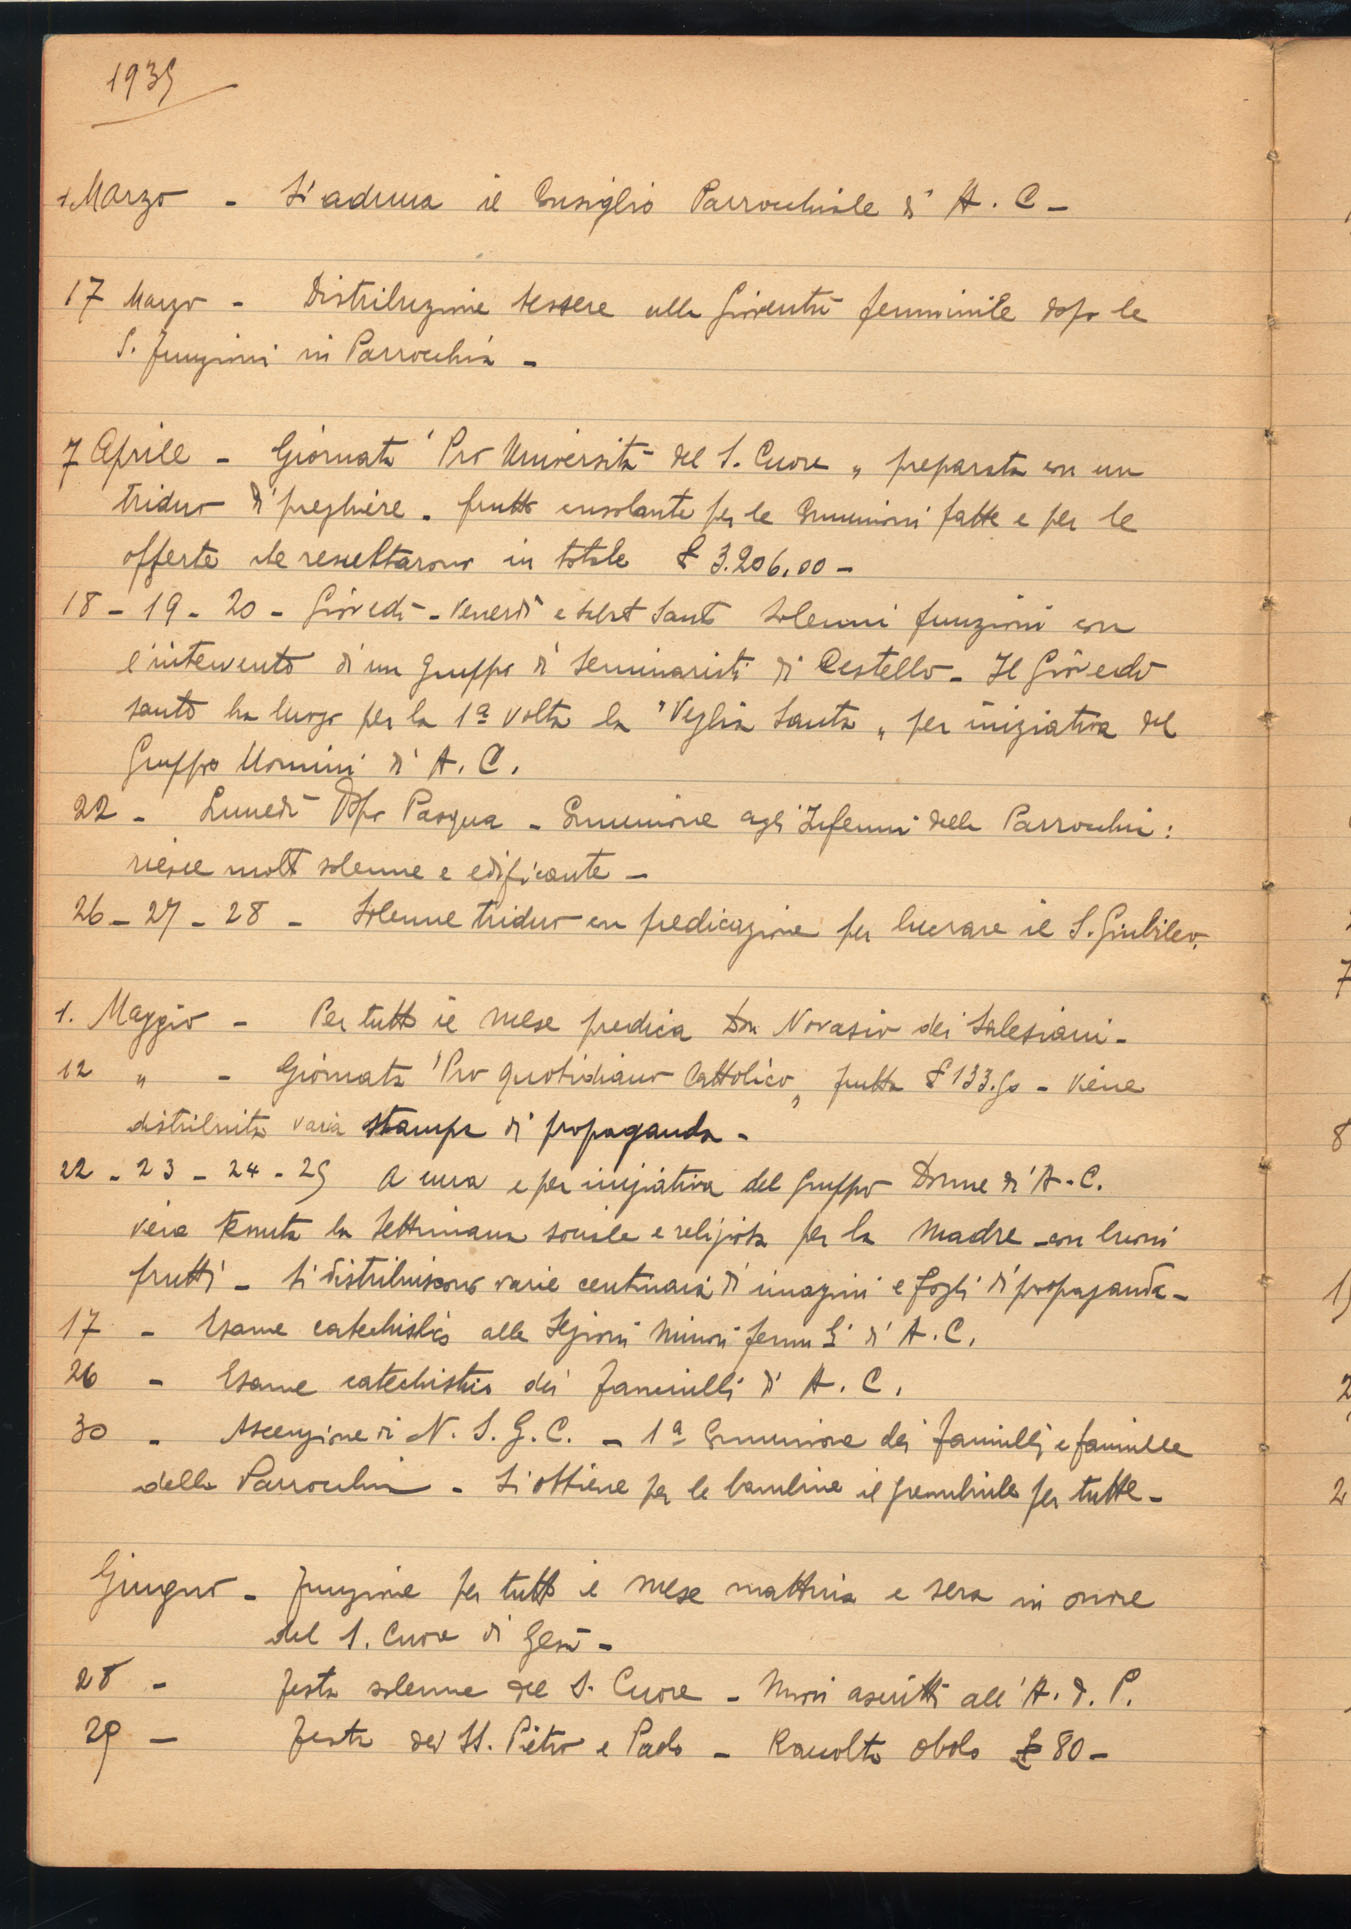 1935
1. Marzo - Si aduna il Consiglio Parrocchiale di A. C. -
17 Marzo - Distribuzione tessere alla Gioventù femminile dopo le
S. funzioni in Parrocchia -
7 Aprile - Giornata "Pro Università del S. Cuore" preparata con un
triduo di preghiere. frutto consolante per le Comunioni fatte e per le
offerte che resultarono in totale £ 3.206,00 -
18 - 19 - 20 - Giovedì - Venerdì e Sabato Santo solenni funzioni con
l'intervento di un gruppo di Seminaristi di Cestello - Il Giovedì
santo ha luogo per la 1ª volta la "Veglia Santa" per iniziativa del
Gruppo Uomini di A. C.
22 - Lunedì dopo Pasqua - Comunione agli Infermi della Parrocchia:
riesce molto solenne e edificante -
26 - 27 - 28 - Solenne triduo con predicazione per lucrare il S. Giubileo.
1. Maggio - Per tutto il mese predica Don Novasio dei Salesiani -
12 " - Giornata "Pro quotidiano Cattolico" frutta £ 133.50 - Viene
distribuita varia stampa di propaganda -
22 - 23 - 24 - 25 A cura e per iniziativa del gruppo Donne di A. C.
viene tenuta la Settimana sociale e religiosa per la Madre - con buoni
frutti - Si distribuiscono varie centinaia di imagini e fogli di propaganda -
17 - Esame catechistico alle Sezioni Minori femm li di A. C.
26 - Esame catechistico dei fanciulli di A. C.
30 - Ascenzione di N. S. G. C. - 1ª Comunione dei fanciulli e fanciulle
della Parrocchia - Si ottiene per le bambine il grembiule per tutte -
Giugno - funzione per tutto il mese mattina e sera in onore
del S. Cuore di Gesù -
28 - festa solenne del S. Cuore - Nuovi ascritti all'A. d. P.
29 - festa dei SS. Pietro e Paolo - Raccolto obolo £ 80 -